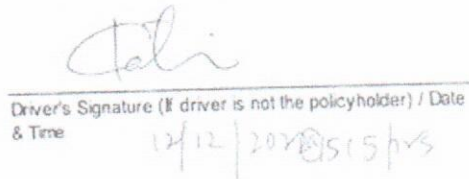 Driver's Signature (If driver is not the policyholder) / Date
& Time
12/12/